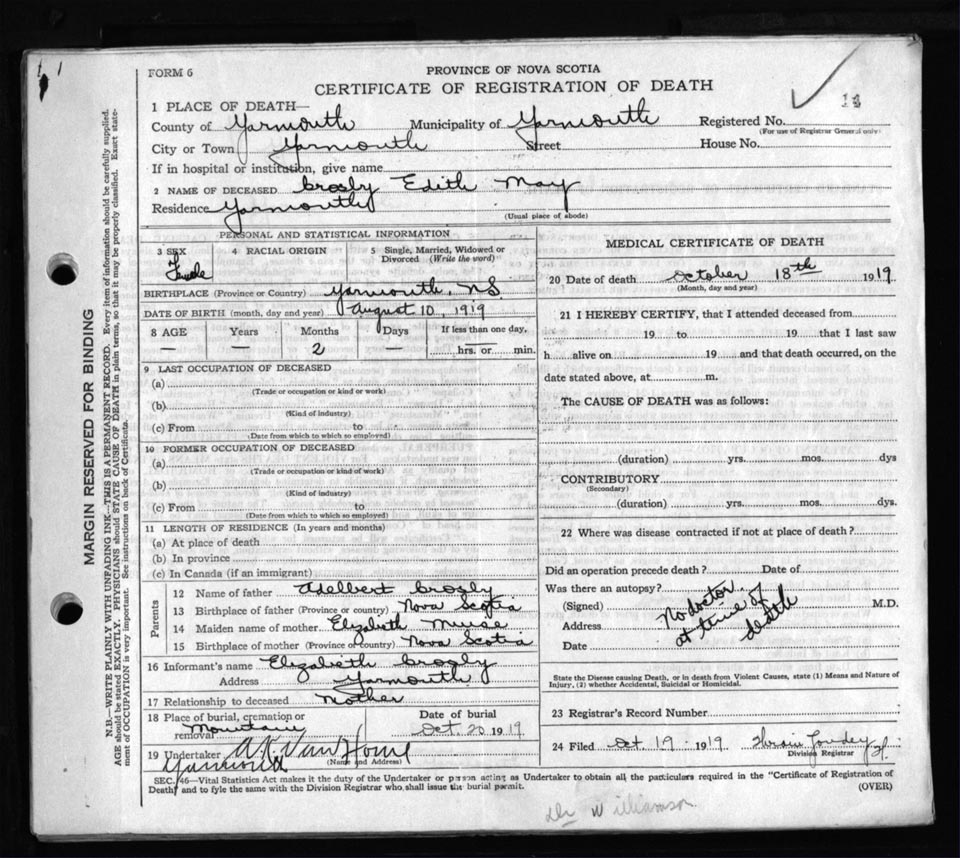 FORM 6
PROVINCE OF NOVA SCOTIA
CERTIFICATE OF REGISTRATION OF DEATH
1 PLACE OF DEATH—
County of Yarmouth Municipality of Yarmouth Registered No.
(For use of Registrar General only)
City or Town Yarmouth Street House No.
If in hospital or institution, give name
2 NAME OF DECEASED Crosby Edith May
Residence Yarmouth
(Usual place of abode)
PERSONAL AND STATISTICAL INFORMATION
3 SEX 4 RACIAL ORIGIN 5 Single, Married, Widowed or Divorced (Write the word)
Female
BIRTHPLACE (Province or Country) Yarmouth, NS
DATE OF BIRTH (month, day and year) August 10, 1919
8 AGE Years Months Days If less than one day,
— — 2 — hrs. or min.
9 LAST OCCUPATION OF DECEASED
(a)
(Trade or occupation or kind or work)
(b)
(Kind of industry)
(c) From to
(Date from which to which so employed)
10 FORMER OCCUPATION OF DECEASED
(a)
(Trade or occupation or kind of work)
(b)
(Kind of industry)
(c) From to
(Date from which to which so employed)
11 LENGTH OF RESIDENCE (In years and months)
(a) At place of death
(b) In province
(c) In Canada (if an immigrant)
Parents
12 Name of father Adelbert Crosby
13 Birthplace of father (Province or country) Nova Scotia
14 Maiden name of mother Elizabeth Muise
15 Birthplace of mother (Province or country) Nova Scotia
16 Informant's name Elizabeth Crosby
Address Yarmouth
17 Relationship to deceased Mother
18 Place of burial, cremation or removal Mountain Date of burial
Oct. 20 1919
19 Undertaker A. Van Horne
(Name and Address)
Yarmouth
MEDICAL CERTIFICATE OF DEATH
20 Date of death October 18th 1919
(Month, day and year)
21 I HEREBY CERTIFY, that I attended deceased from
19 to 19 that I last saw
h alive on 19 and that death occurred, on the
date stated above, at m.
The CAUSE OF DEATH was as follows:
(duration) yrs. mos. dys
CONTRIBUTORY
(Secondary)
(duration) yrs. mos. dys.
22 Where was disease contracted if not at place of death?
Did an operation precede death? Date of
Was there an autopsy?
(Signed) M.D.
Address
Date
No doctor
at time of
death
State the Disease causing Death, or in death from Violent Causes, state (1) Means and Nature of
Injury, (2) whether Accidental, Suicidal or Homicidal.
23 Registrar's Record Number
24 Filed Oct 19 1919
Division Registrar
SEC. 46—Vital Statistics Act makes it the duty of the Undertaker or person acting as Undertaker to obtain all the particulars required in the "Certificate of Registration of
Death, and to fyle the same with the Division Registrar who shall issue the burial permit.
(OVER)
Dr Williamson
MARGIN RESERVED FOR BINDING
N.B.—WRITE PLAINLY WITH UNFADING INK—THIS IS A PERMANENT RECORD. Every item of information should be carefully supplied.
AGE should be stated EXACTLY. PHYSICIANS should STATE CAUSE OF DEATH in plain terms, so that it may be properly classified. Exact state-
ment of OCCUPATION is very important. See instructions on back of Certificate.